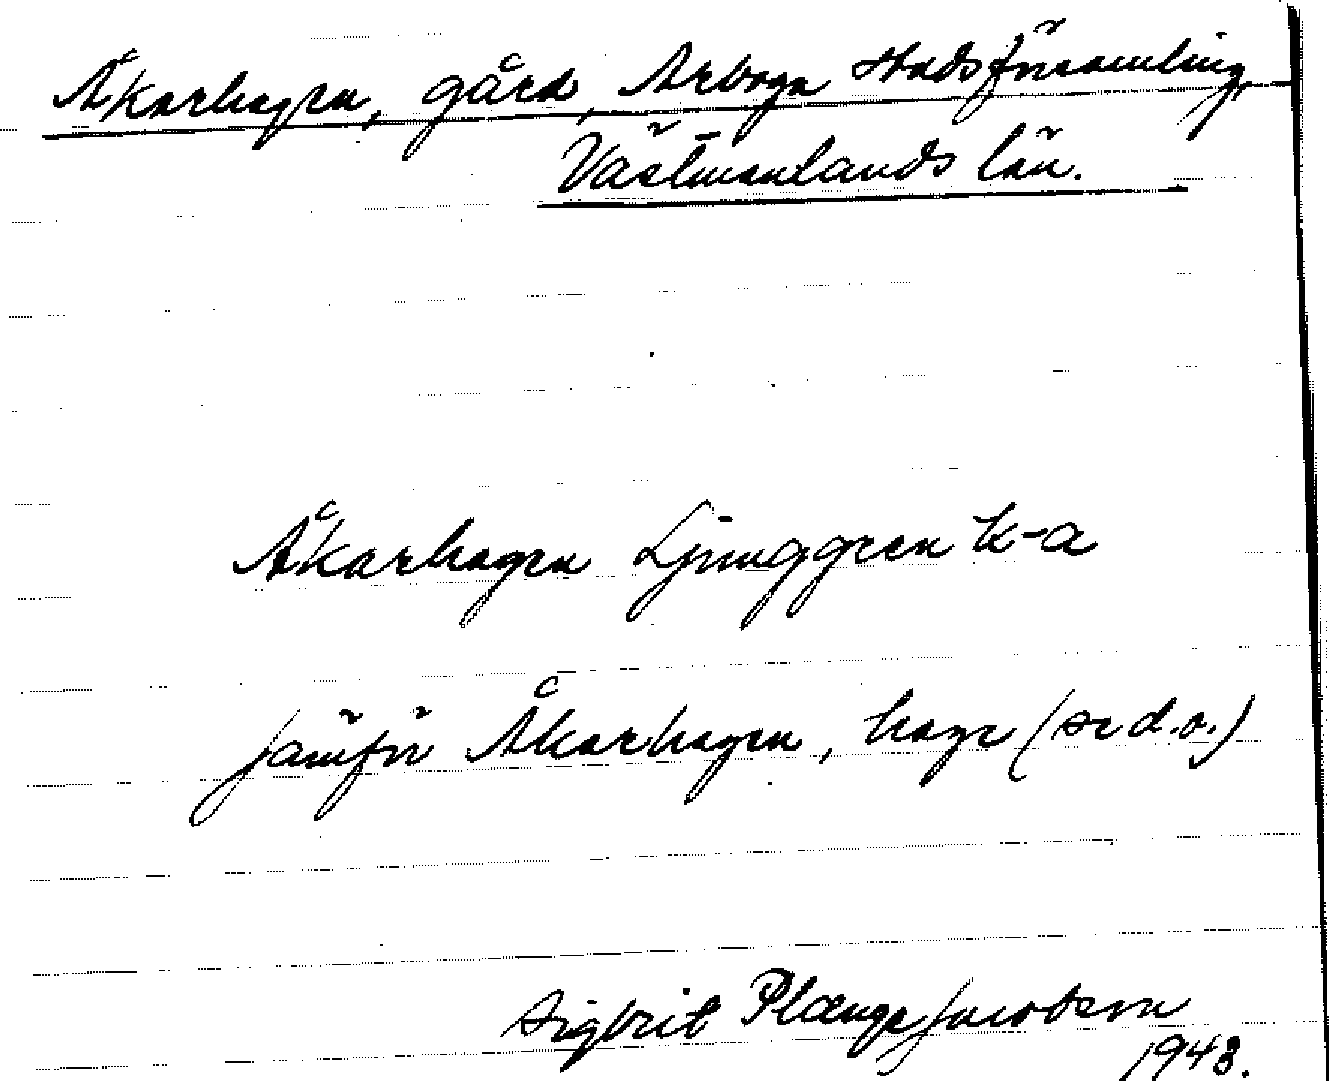 Åkarhagen, gård, Arboga stadsförsamling,
Västmanlands län.
Åkarhagen Ljunggren k-a
Jämför Åkarhagen, hage (se d.o.)
Sigbrit Plænge Jacobson
1948.